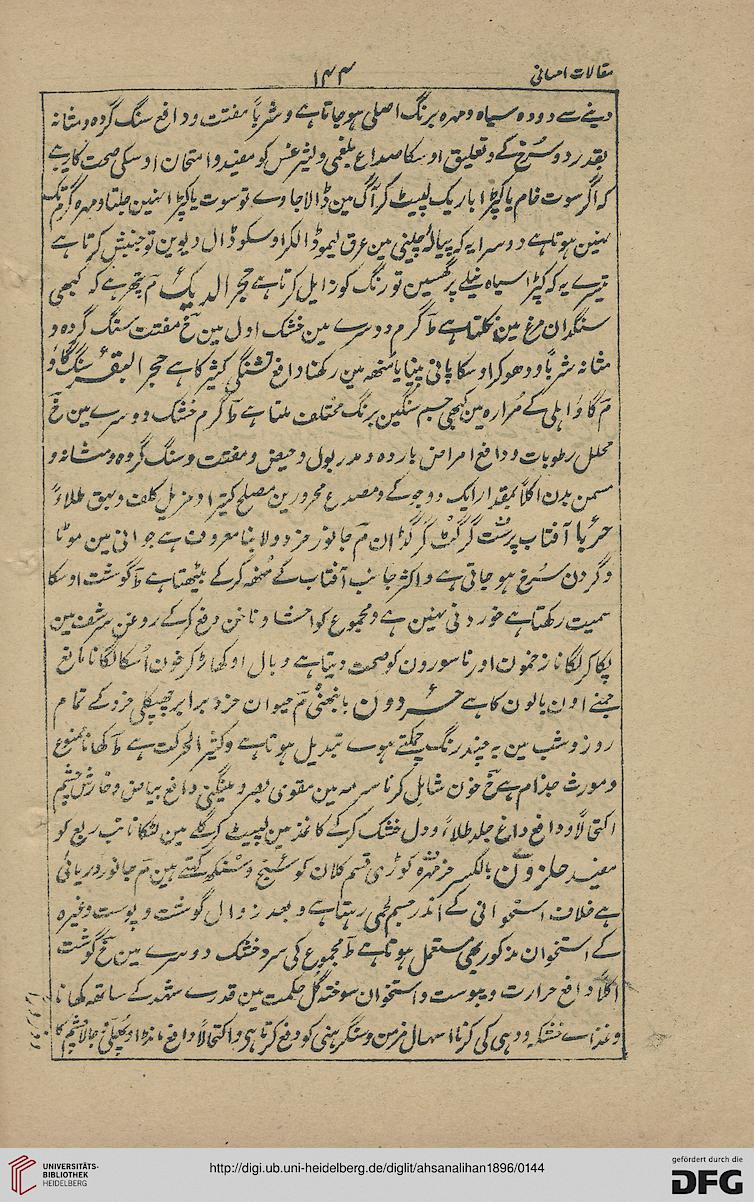 مقالات احسانی ۱۴۴
دینے سے دودہ سیاہ ومہرہ برنگ اصلی ہوجاتا ہے وشرباً مفتت ودافع سنگ گردہ ومثانہ
بقدر دو سُرخ کے وتعلیق اوسکا صداع بلغمی ولیثرغس کو مفید وامتحان اوسکی صحت کا یہ ہے
کہ اگر سوت خام یا کپڑا باریک لپیٹ کر آگ مین ڈالا جاوے تو سوت یا کپڑا نہین جلتا ومہرہ گرم تک
نہین ہوتا ہے دوسرا یہ کہ پیالۂ چینی مین عرق لیمو ڈالکر اوسکو ڈال دیوین تو جنبش کرتا ہے
تیسرے یہ کہ کپڑا سیاہ نیلے پر گھسین تو رنگ کو زایل کرتا ہے حجر الدیک مَ پتھر ہے کہ کبھی
سنگدان مرغ مین نکلتا ہے طَ گرم دوسرے مین خشک اول مین خَ مفتت سنگ گردہ و
مثانہ شرباً ودھوکر اوسکا پانی پینا یا منھہ مین رکھنا دافع تشنگی کثیر کا ہے حجر البقر سنگ گاؤ
مَ گاؤ اہلی کے مُرارہ مین کبھی جسم سنگین برنگ مختلف ملتا ہے طَ گرم خشک دوسرے مین خَ
محلل رطوبات ودافع امراض باردہ ومدر بول وحیض ومفتت وسنگ گردہ ومثانہ و
مسمن بدن اکلاً بمقدار ایک دو جو کے ومصدع محرورین مصلح کتیرا ومزیل کلف وبہق طلاءً
حربا آفتاب پرست گرگٹ گرگٹان مَ جانور خزد ودلابنا معروف ہے جوانی مین موٹا
وگردن سرخ ہوجاتی ہے واکثر جانب آفتاب کے منھہ کرکے بیٹھتا ہے طَ گوشت اوسکا
سمیت رکھتا ہے خوردنی نہین ہے ومجموع کو احشا وناخن دفع کرکے روغن سرشف مین
پکاکر لگانا زخمون اور ناسورون کو صحت دیتا ہے وبال اوکھاڑکر خون اُسکا لگانا مانع
جمنے اون بالون کا ہے حردون بابنھنی مَ حیوان خزد برابر چھپکلی خزد کے تمام
روز وشب مین یہ چند رنگ چمکتے ہوے تبدیل ہوتا ہے وکثیر الحرکت ہے طَ کھانا ممنوع
ومورث جذام ہے خَ خون شامل کرنا سرمہ مین مقوی بصر ومینگنی دافع بیاض وخارش چشم
اکتحالاً ودافع داغ جلد طلاءً ودل خشک کرکے کاغذ مین لپیٹ کرگلے مین لٹکانا تب ربع کو
مفید حلزون بالکسر خزمہرہ کوڑی قسم کلان کو شنج وسنکھہ کہتے ہین مَ جانور دریائی
ہے غلاف استخوانی کے اندر جسم لحمی رہتا ہے وبعد زوال گوشت وپوست وغیرہ
کے استخوان مذکور بھی مستعمل ہوتا ہے طَ مجموع کی سرد خشک دوسرے مین خَ گوشت
اکلاً دافع حرارت ویبوست واستخوان سوختہ گل حکمت مین قدرے شہد کے ساتھہ کھانا
وغذاے خشکہ ودہی کی کرنا اسہال مزمن وسنگرہنی کو دفع کرتا ہی واکتحالاً دافع مانڈا وپھلی وجالا چشم کا
UNIVERSITÄTS-
BIBLIOTHEK
HEIDELBERG
http://digi.ub.uni-heidelberg.de/diglit/ahsanalihan1896/0144
gefördert durch die
DFG